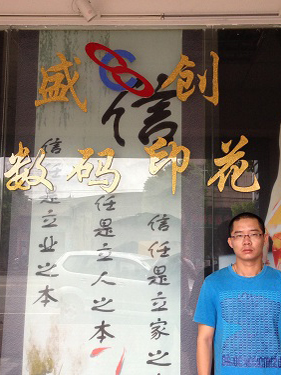 盛创
数码印花
信
信任是立业之本
任是立人之本
信任是立家之